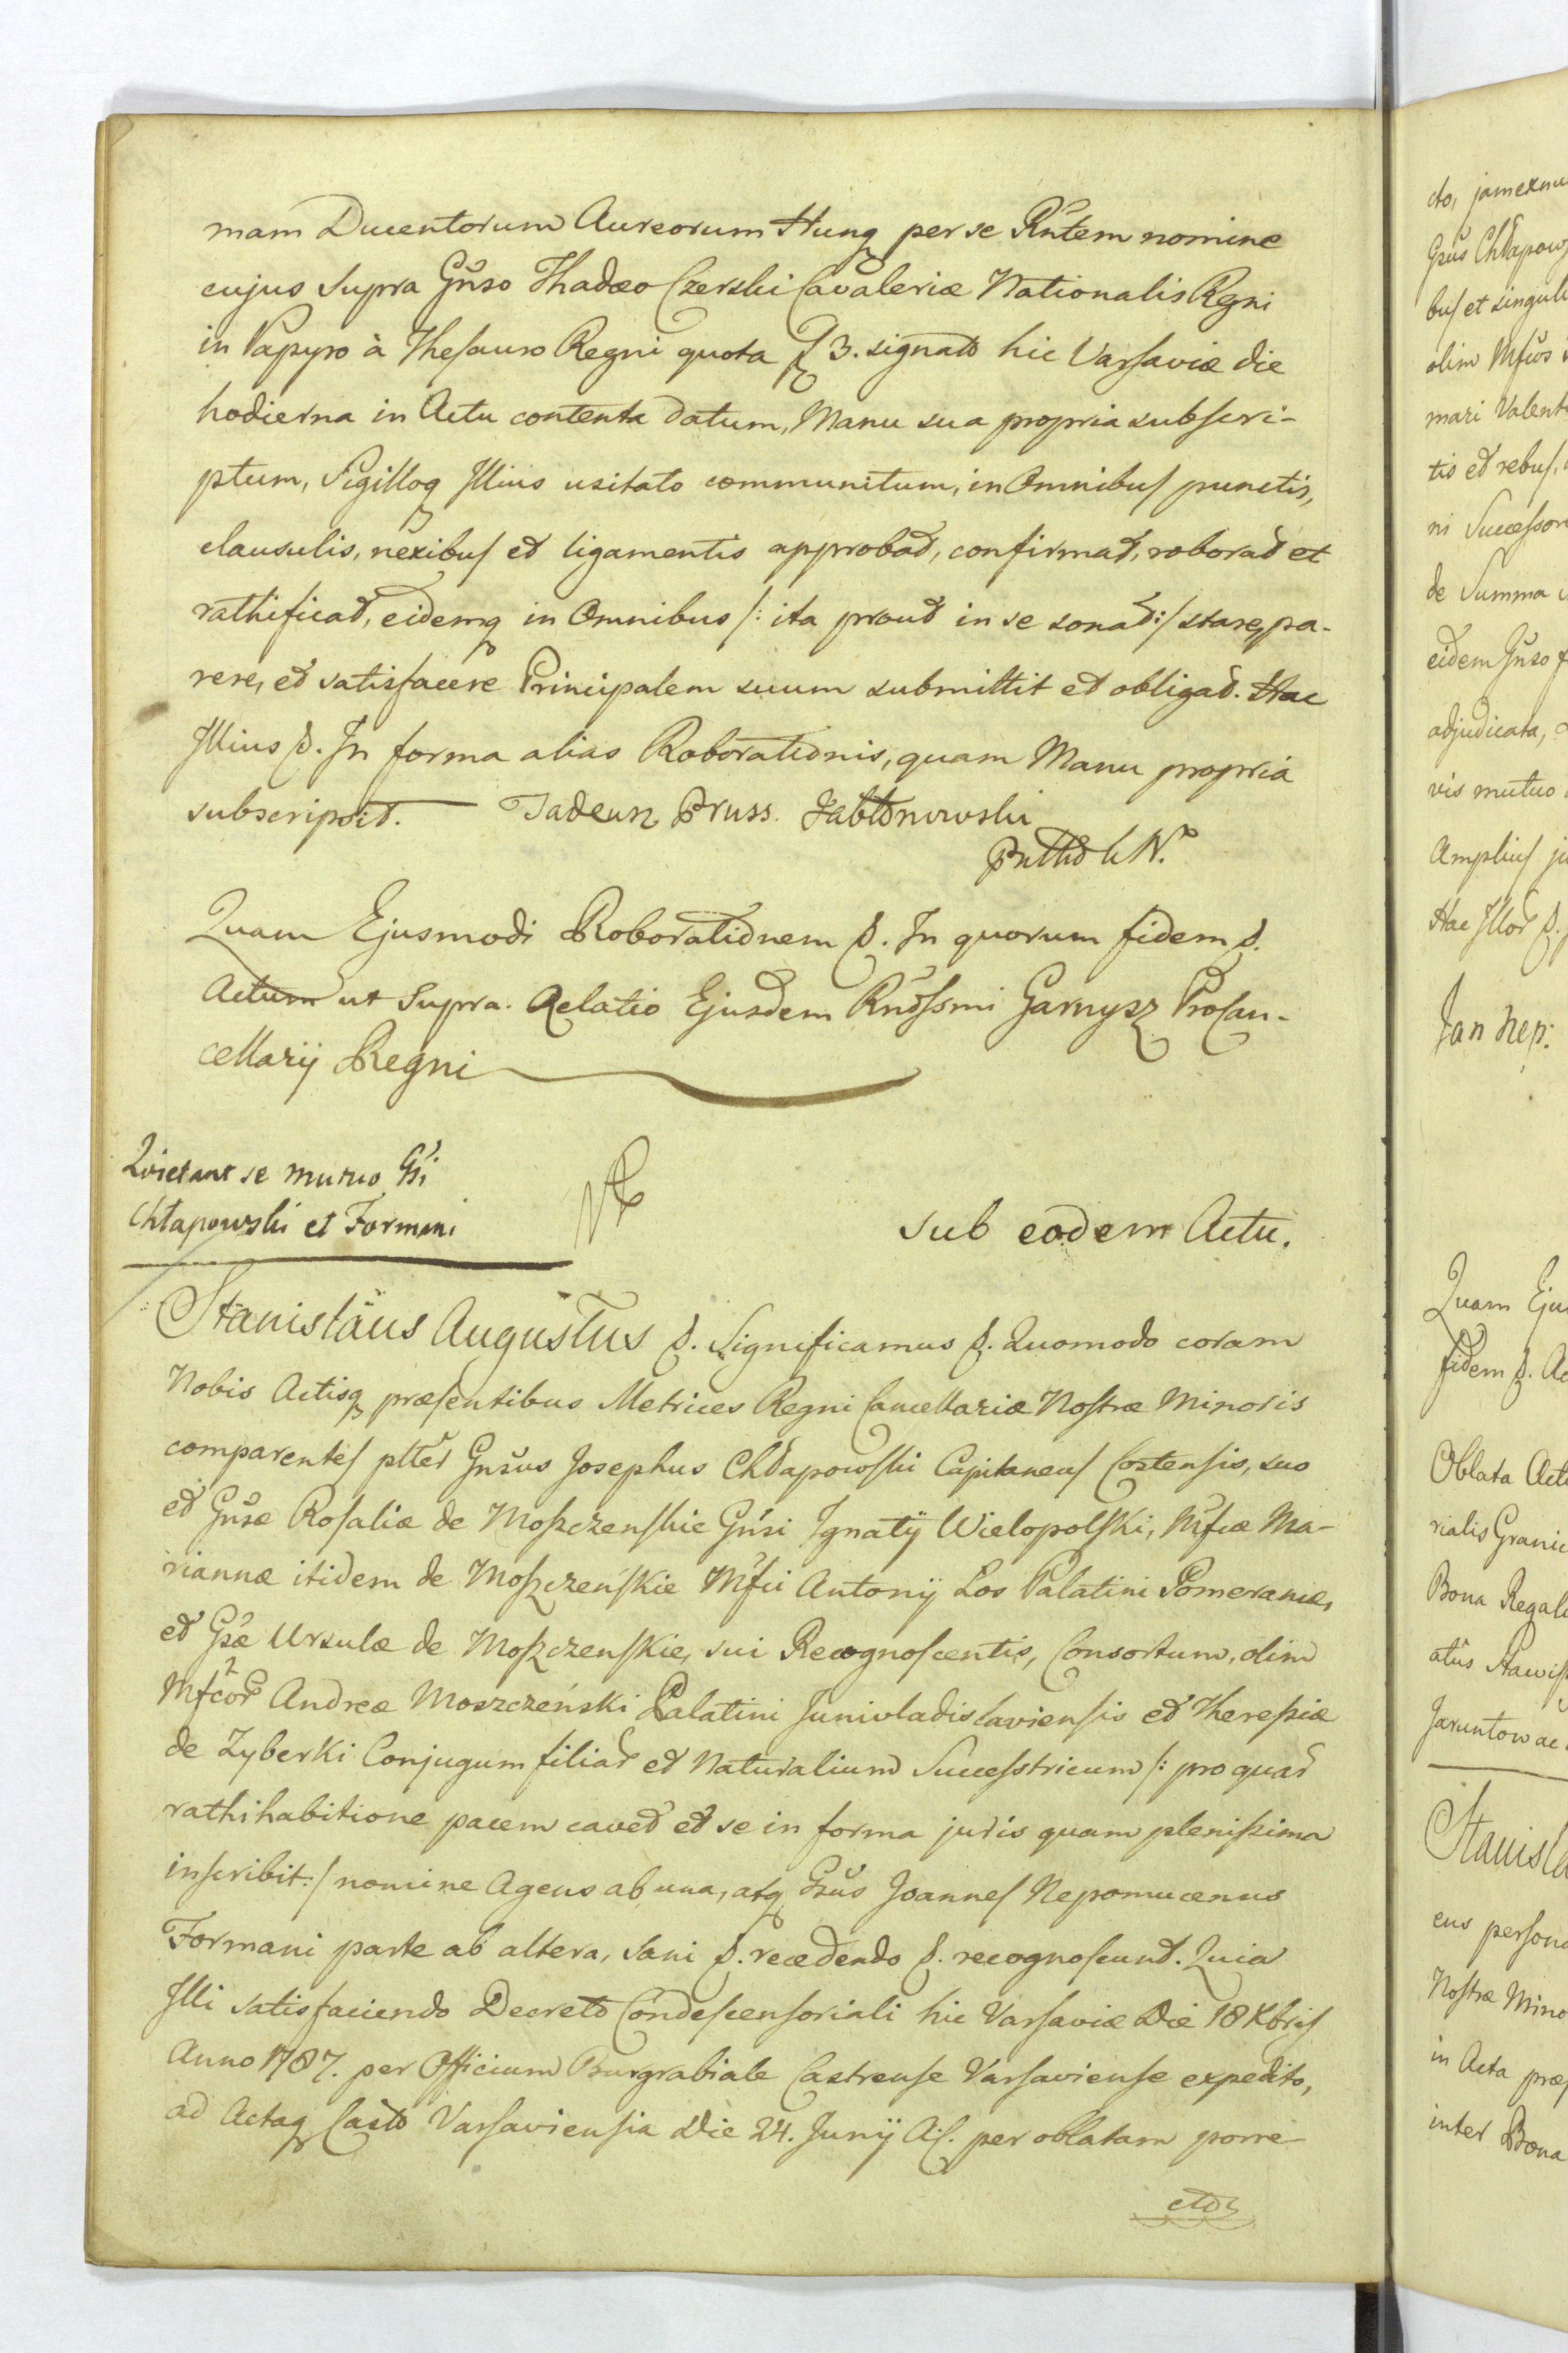 mam Ducentorum Aureorum Hungq per se Rñtem nomine
cujus supra Gñso Thadæo Czerski Cavaleriæ Nationalis Regni
in Papyro à Thesauro Regni quota 3. signato hic Varsaviæ die
hodierna in Actu contenta datum, Manu sua propria subscri-
ptum, Sigilloq Illius usitato communitum, in Omnibus punctis,
clausulis, nexibus et ligamentis approbat, confirmat, roborat et
rathificat, eidemq in Omnibus /: ita prout in se sonat :/ stare, pa-
rere, et satisfacere Principalem suum submittit et obligat. Hac
Illius &. In forma alias Roborationis, quam Manu propria
subscripsit. Tadeusz Pruss. Jabłonowski
Quam Ejusmodi Roborationem &. In quorum fidem &.
Actum ut Supra. Relatio Ejusdem Rñdssmi Garnysz ProCan-
cellarij Regni
Quietant se mutuo Gsi
Chłapowski et Formani
Sub eodem Actu.
Stanisläus Augustus &. Significamus &. Quomodo coram
Nobis Actisq præsentibus Metrices Regni Cancellariæ Nostræ Minoris
comparentes plter Gnsus Josephus Chłapowski Capitaneus Costensis, suo
et Gnsæ Rosaliæ de Moszczenskie Gnsi Ignatij Wielopolski, Mfcæ Ma-
riannæ itidem de Moszczeńskie Mfci Antonij Los Palatini Pomeraniæ,
et Gsæ Ursulæ de Moszczenskie, sui Recognoscentis, Consortum, olim
Mfcor Andreæ Moszczeński Palatini Junivladislaviensis et Theresiæ
de Zyberki Conjugum filiar et Naturalium Successtricum /: pro quar
rathihabitione pacem cavet et se in forma juris quam plenissima
inscribit :/ nomine Agens ab una, atq Gsus Joannes Nepomucenus
Formani parte ab altera, Sani &. recedendo &. recognoscunt. Quia
Illi satisfaciendo Decreto Condescensoriali hic Varsaviæ Die 18 Xbris
Anno 1787. per Officium Burgrabiale Castrense Varsaviense expedito,
ad Actaq Castr Varsaviensia Die 24. Junij A. per oblatam porre-
cto,
cto, jam
Gsus Chłapow
bus et singul
olim Mfcos
mari Valent
tis et rebus,
ni Successor
de Summa
eidem Gnso
adjudicata,
vis mutuo
Amplius
Hac Illor &.
Jan Nep:
Quam Eju
fidem &. Ac
Oblata Act
rialis Grani
Bona Regal
Stanisla
ens person
Nostræ Mino
in Acta præ
inter Bona